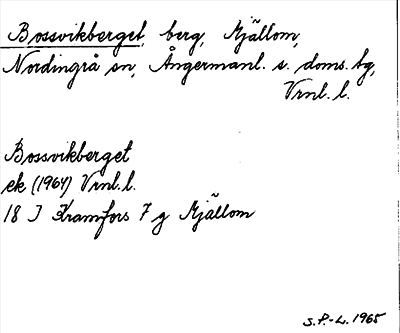 Bossvikberget, berg, Mjällom,
Nordingrå sn, Ångermanl. s. doms. tg,
Vrnl. l.
Bossvikberget
ek (1964) Vrnl. l.
18 I Kramfors 7 g Mjällom
S.P.-L. 1965